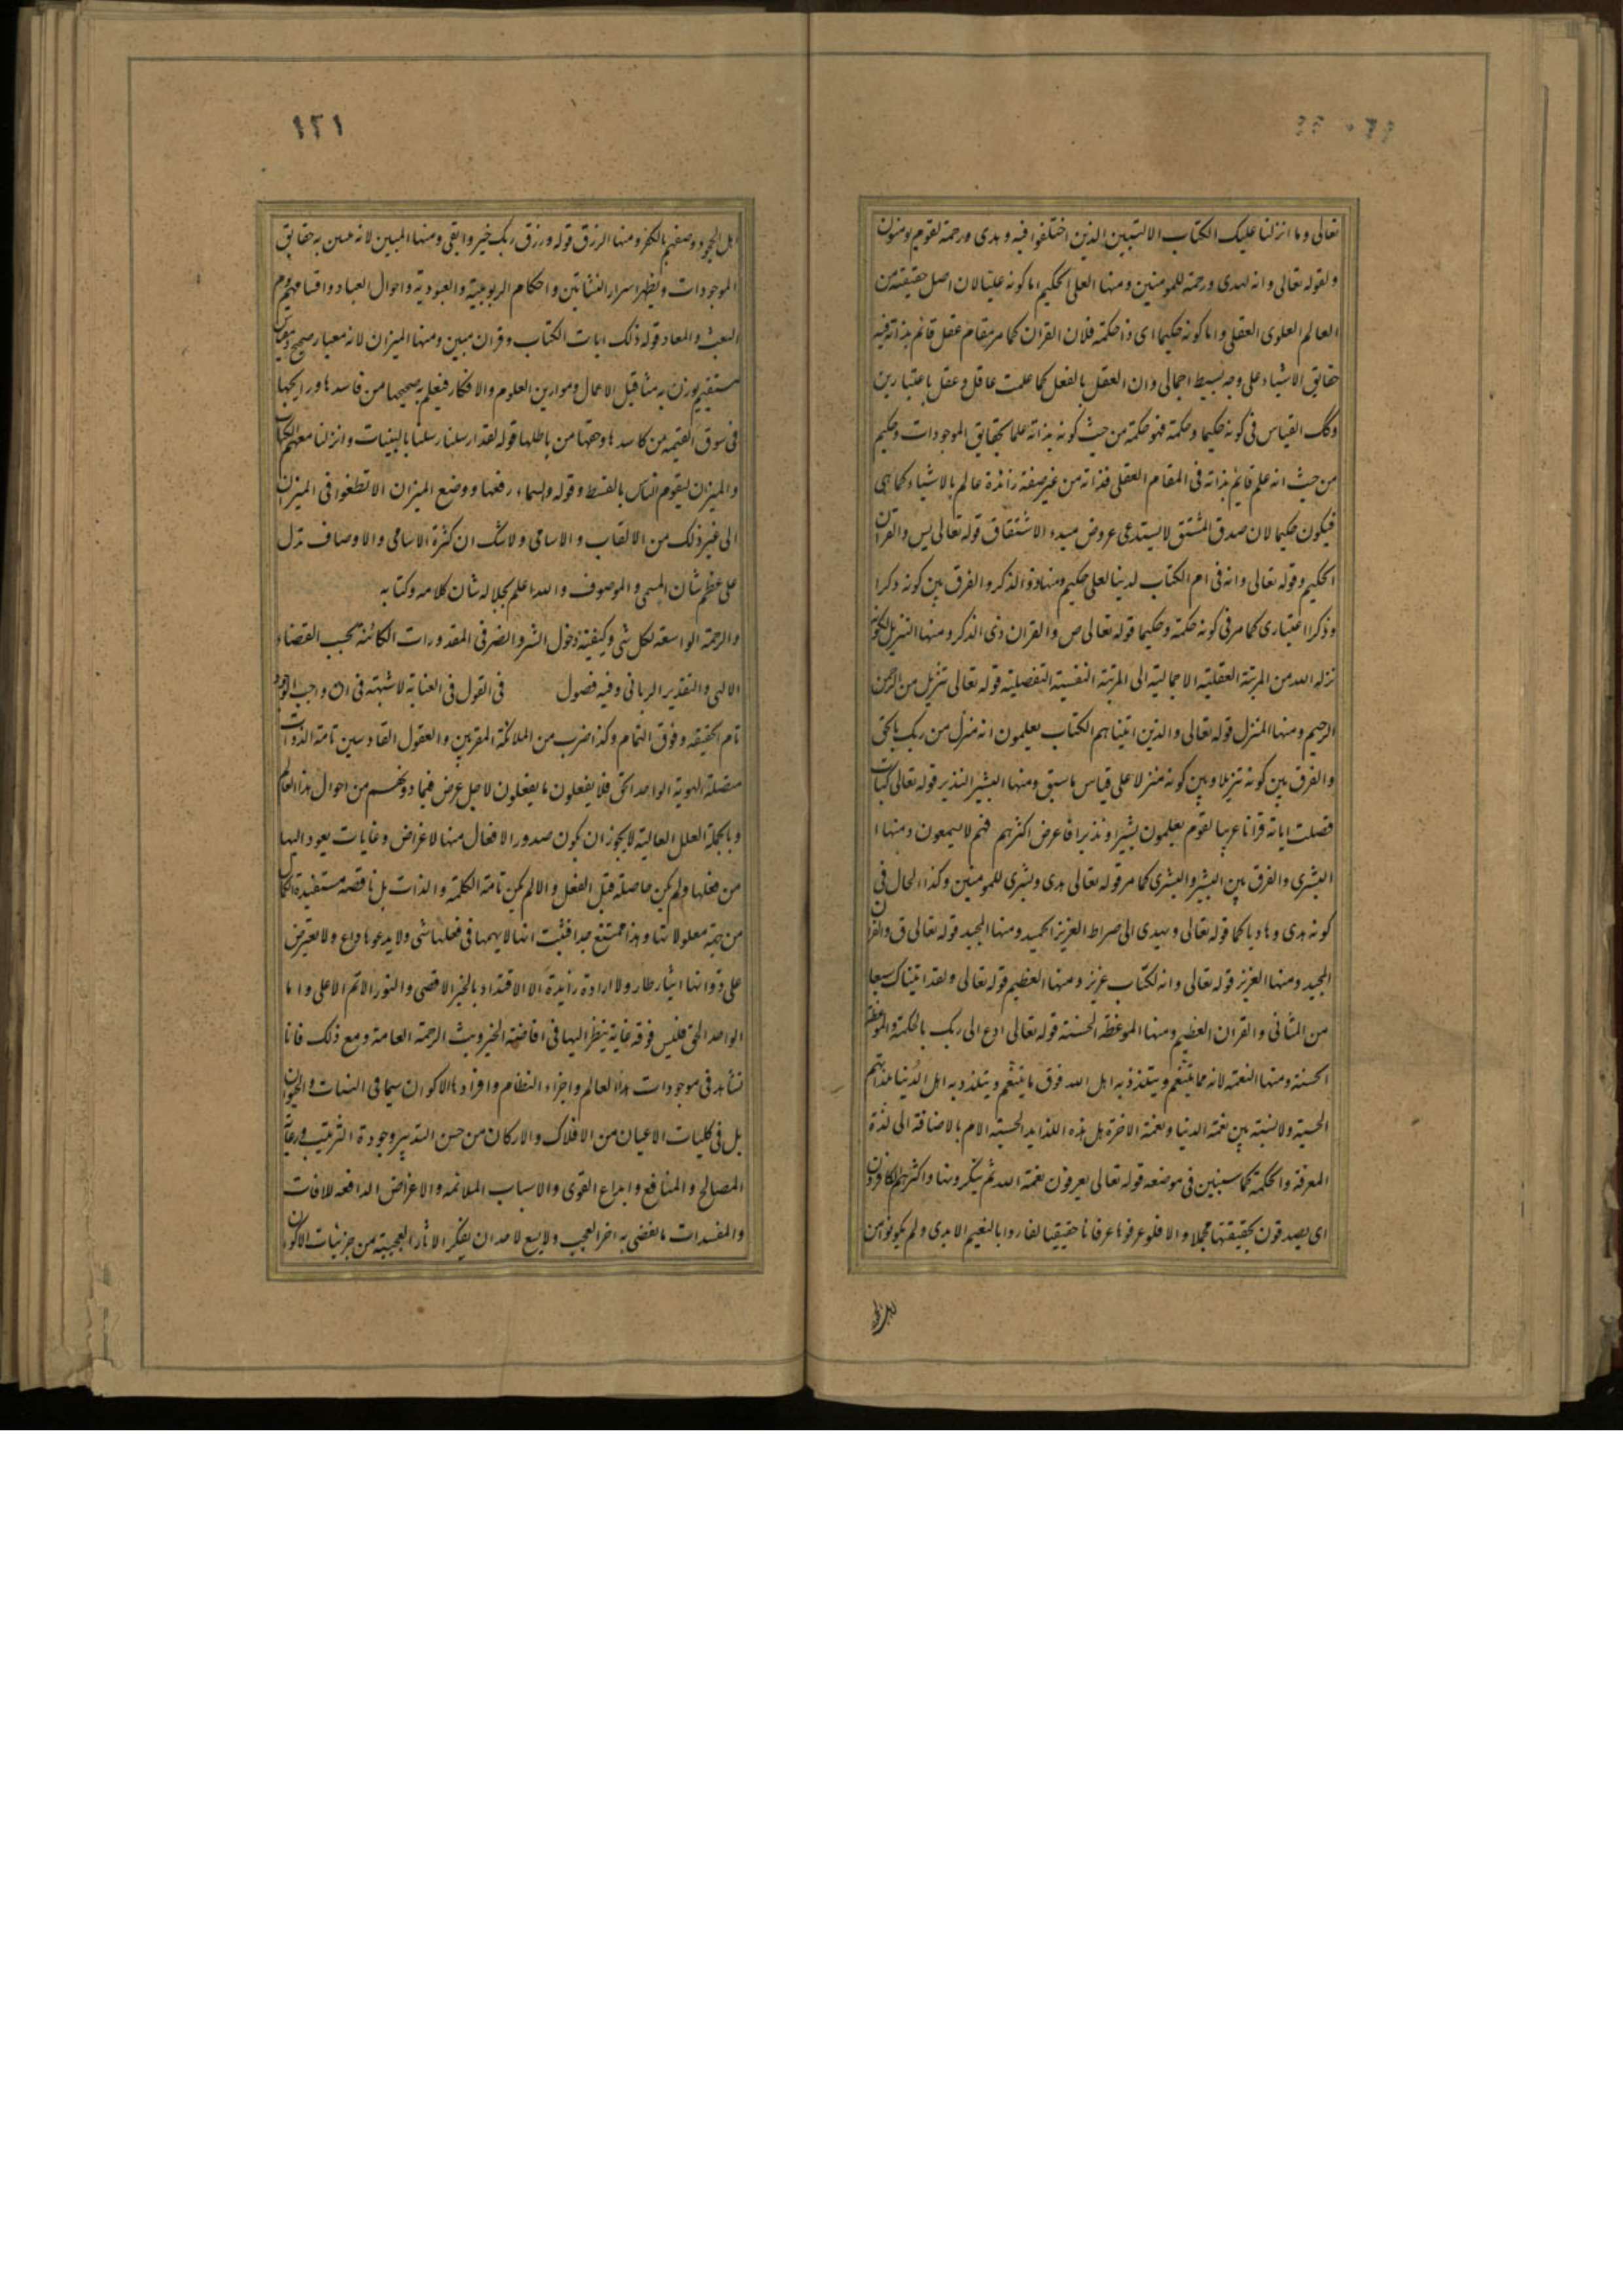 تعالى وما انزلنا عليك الكتاب الا لتبين الذين اختلفوا فيه وهدى ورحمة لقوم يومنون
ولقوله تعالى وانه لهدى ورحمة للمومنين ومنها العلى الحكيم اما كونه عليا لان اصل حقيقته من
العالم العلوى العقلى واما كونه حكيما اى ذا حكمة فلان القران كما مر مقام عقل قائم بذاته فيه
حقايق الاشياء على وجه بسيط اجمالى وان العقل بالفعل كما علمت عاقل وعقل باعتبارين
وكك القياس فى كونه حكيما وحكمة فهو حكمة من حيث كونه بذاته علما بحقايق الموجودات وحكيم
من حيث انه علم قايم بذاته فى المقام العقلى فذاته من غير صفة زائدة عالم بالاشياء كما هى
فيكون حكيما لان صدق المشتق لا يستدعى عروض مبدء الاشتقاق قوله تعالى يس والقران
الحكيم وقوله تعالى وانه فى ام الكتاب لدينا لعلى حكيم ومنها ذو الذكر والفرق بين كونه ذكرا
وذكرا اعتبارى كما مر فى كونه حكمة وحكيما قوله تعالى ص والقران ذى الذكر ومنها التنزيل لكونه
نزله الله من المرتبة العقلية الاجمالية الى المرتبة النفسية التفصلية قوله تعالى تنزيل من الرحمن
الرحيم ومنها المنزل قوله تعالى والذين اتيناهم الكتاب يعلمون انه منزل من ربك بالحق
والفرق بين كونه تنزيلا وبين كونه منزلا على قياس ما سبق ومنها البشير النذير قوله تعالى كتاب
فصلت اياته قرانا عربيا لقوم يعلمون بشيرا ونذيرا فاعرض اكثرهم فهم لا يسمعون ومنها
البشرى والفرق بين البشير والبشرى كما مر قوله تعالى هدى وبشرى للمومنين وكذا الحال فى
كونه هدى وهاديا كما قوله تعالى ويهدى الى صراط العزيز الحميد ومنها المجيد قوله تعالى ق والقران
المجيد ومنها العزيز قوله تعالى وانه لكتاب عزيز ومنها العظيم قوله تعالى ولقد اتيناك سبعا
من المثانى والقران العظيم ومنها الموعظة الحسنة قوله تعالى ادع الى ربك بالحكمة والموعظة
الحسنة ومنها النعمة لانه مما يتنعم ويتلذذ به اهل الله فوق ما يتنعم ويتلذذ به اهل الدنيا بلذاتهم
الحسية ولا نسبة بين نعمة الدنيا ونعمة الاخرة بل هذه اللذايد الحسية الام بالاضافة الى لذة
المعرفة والحكمة كما سنبين فى موضعه قوله تعالى يعرفون نعمة الله ثم ينكرونها واكثرهم الكافرون
اى يصدقون بحقيقتها مجملا والا فلو عرفوها عرفانا حقيقيا لفازوا بالنعيم الابدى ولم يكونوا من
١٢١
اهل الجحود وصفهم بالكفر ومنها الرزق قوله ورزق ربك خير وابقى ومنها المبين لانه تبين به حقايق
الموجودات ويظهر اسرار النشاتين واحكام الربوبية والعبودية واحوال العباد واقسامهم يوم
البعث والمعاد قوله ذلك ايات الكتاب وقران مبين ومنها الميزان لانه معيار صحيح وميزان
مستقيم يوزن به مثاقيل الاعمال وموازين العلوم والافكار فيعلم به صحيحها من فاسدها ورايجها
فى سوق القيمة من كاسدها وحقها من باطلها قوله لقد ارسلنا رسلنا بالبينات وانزلنا معهم الكتاب
والميزان ليقوم الناس بالقسط وقوله والسماء رفعها ووضع الميزان الا تطغوا فى الميزان
الى غير ذلك من الالقاب والاسامى ولا شك ان كثرة الاسامى والاوصاف تدل
على عظم شان المسمى والموصوف والله اعلم بجلاله شان كلامه وكتابه
والرحمة الواسعة لكل شى وكيفية دخول الشر والضر فى المقدورات الكائنة بحسب القضاء
الالهى والتقدير الربانى وفيه فصول فى القول فى العناية لا شبهة فى ان واجب الوجود
تام الحقيقه وفوق التمام وكذا ضرب من الملائكة المقربين والعقول القادسين تامة الذوات
متصلة الهوية الواحد الحق فلا يفعلون ما يفعلون لاجل غرض فيما دونهم من احوال هذا العالم
وبالجملة العلل العالية لا يجوز ان يكون صدور الافعال منها لاغراض وغايات يعود اليها
من فعلها ولم يكن حاصلة قبل الفعل والا لم يكن تامة الكلمة والذات بل ناقصة مستفيدة الكمال
من جهة معلولاتها وهذا ممتنع جدا فثبت انها لا يهمها فى فعلها شى ولا يدعوها داع ولا يعترض
على ذواتها ايثار طار ولا ارادة زايدة الا الاقتداء بالخير الاقصى والنور الاتم الاعلى واما
الواحد الحق فليس فوقه غاية ينظر اليها فى افاضة الخير وبث الرحمة العامة ومع ذلك فانا
نشاهد فى موجودات هذا العالم واجزاء النظام وافراد الاكوان سيما فى النبات والحيوان
بل فى كليات الاعيان من الافلاك والاركان من حسن التدبير وجودة الترتيب ورعاية
المصالح والمنافع وابداع القوى والاسباب الملائمة والاغراض الدافعة للافات
والمفسدات ما يفضى به اخر العجب ولا يسع لاحد ان ينكر الاثار العجيبة من جزئيات الاكوان